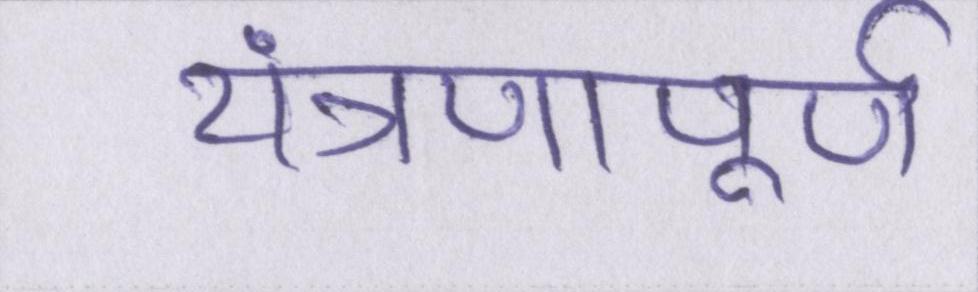 यंत्रणापूर्ण